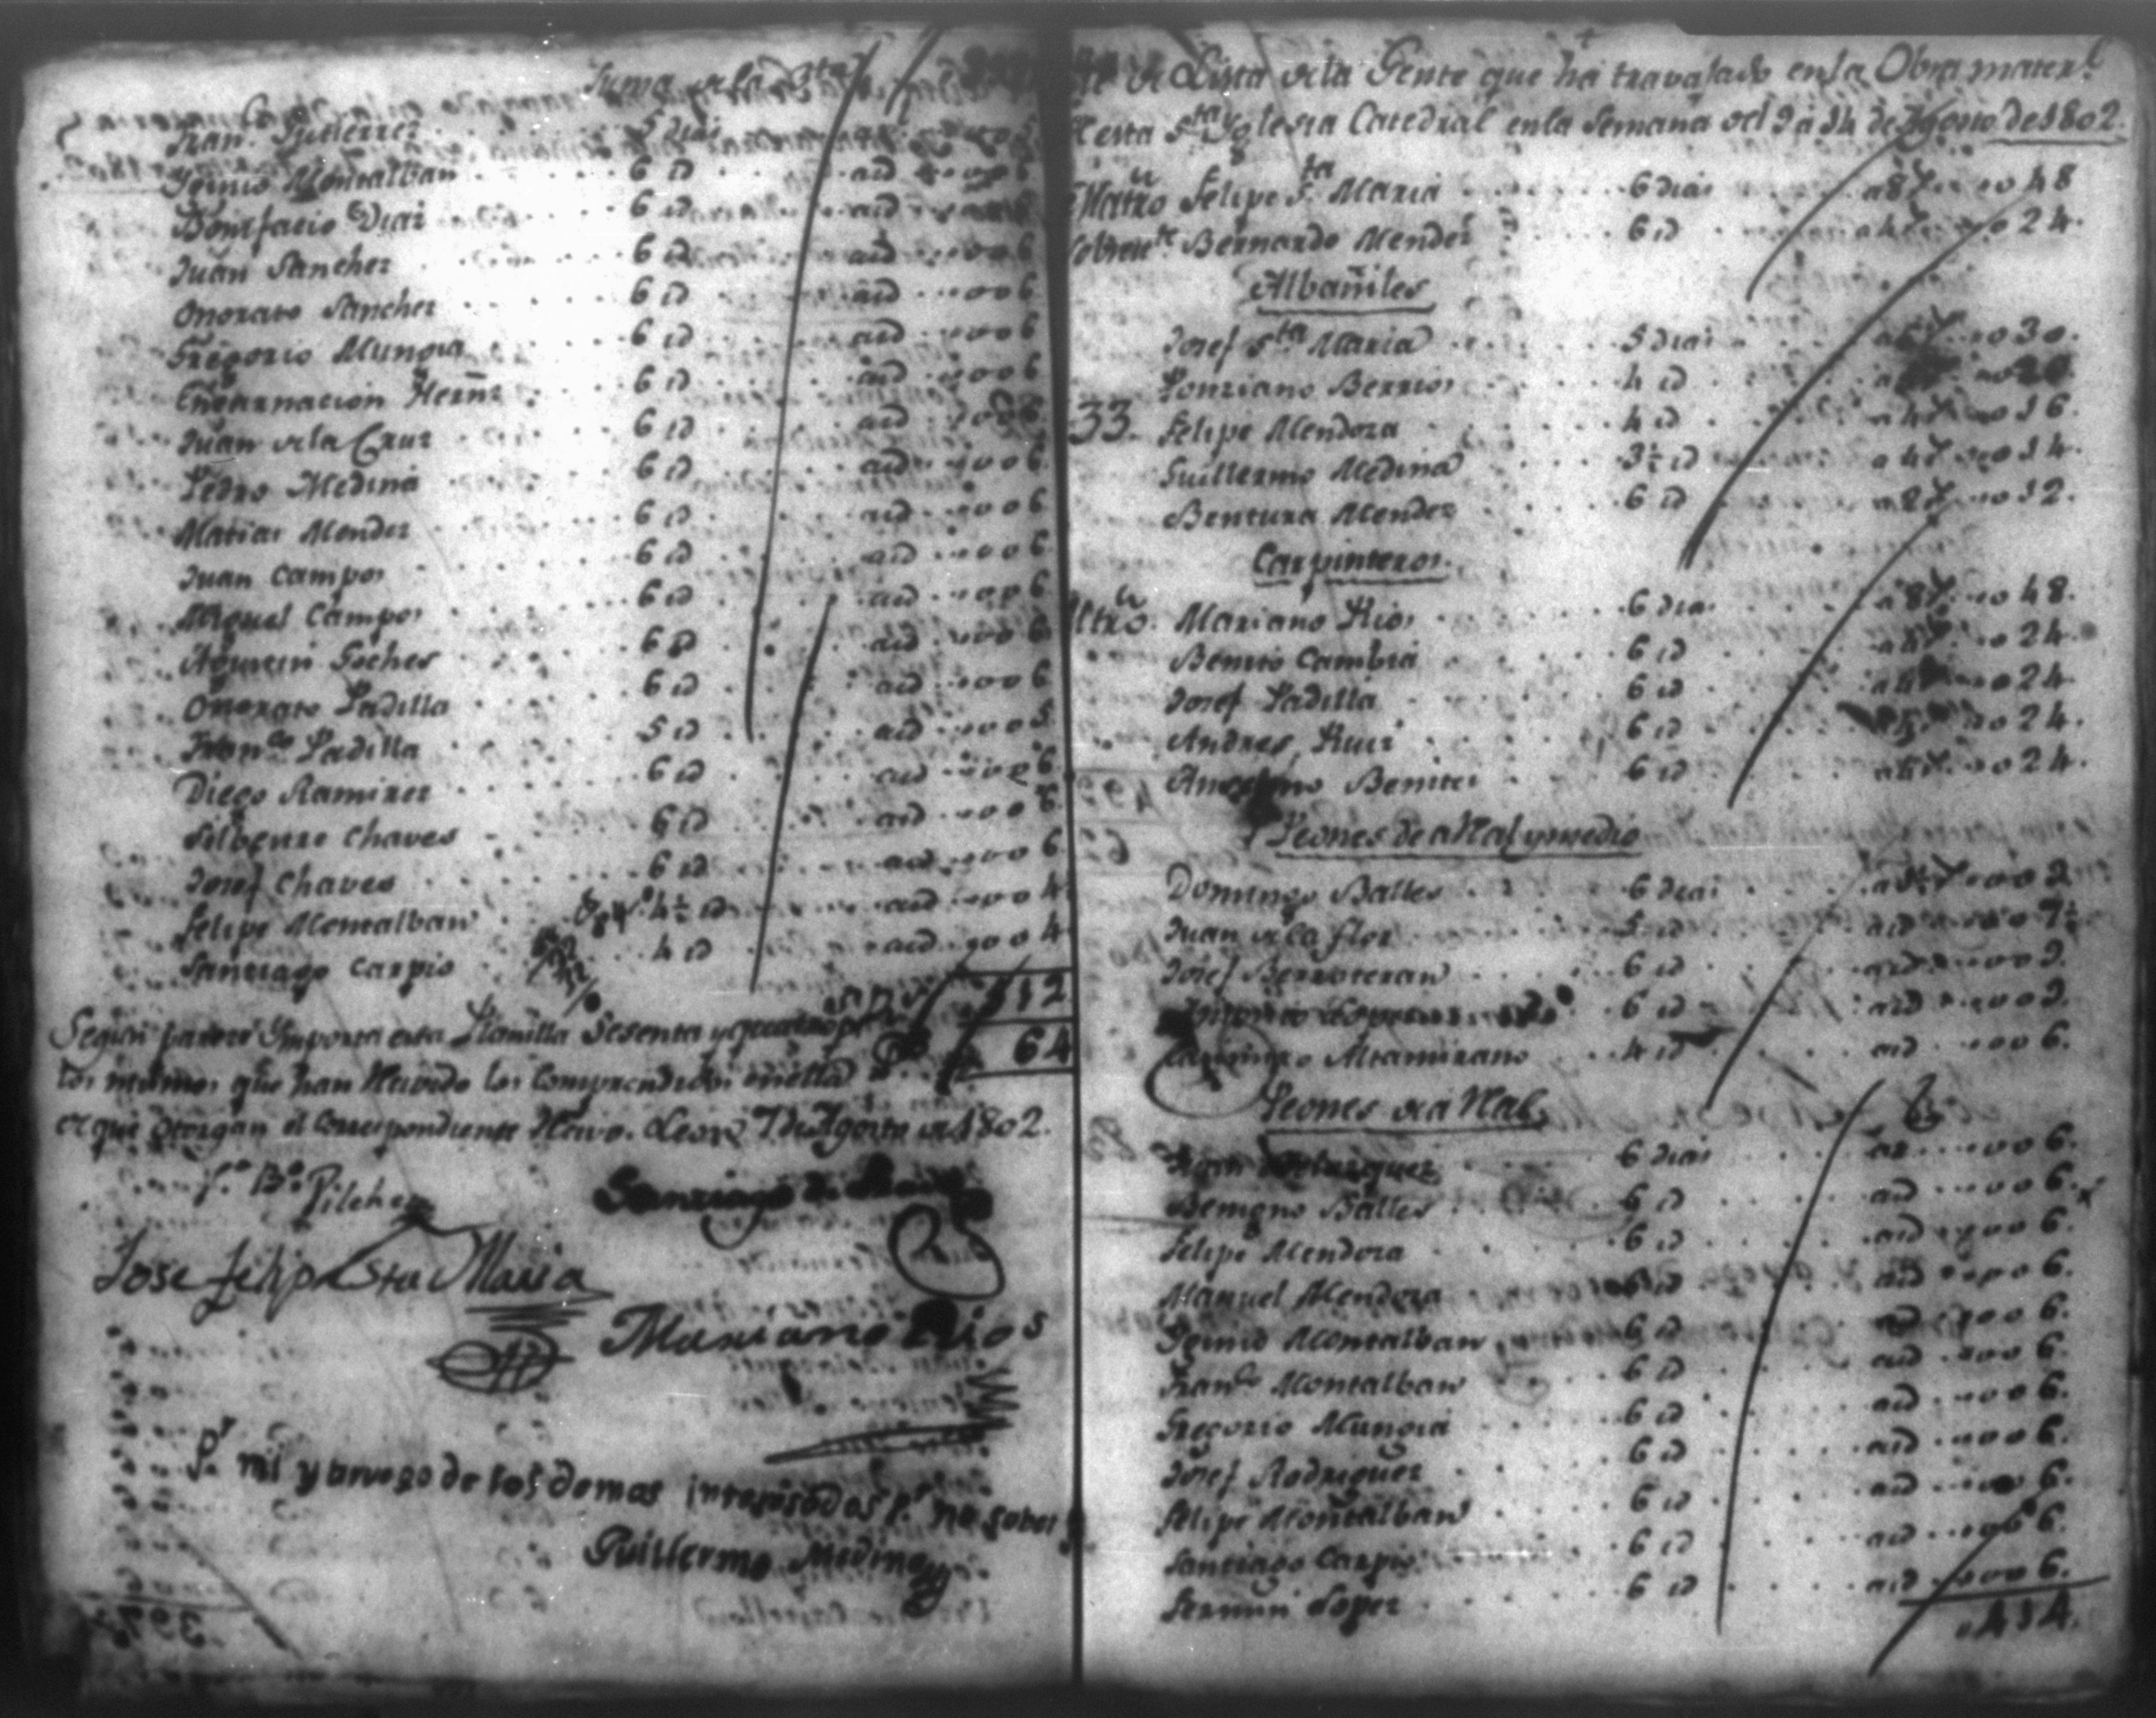 Suma de la
Fran.co Gutierrez 5 dias
Igenio Montalban 6 id aid 6
Bonifacio Diaz 6 id aid 6
Juan Sanchez 6 id aid 6
Onorato Sanchez 6 id aid 006
Gregorio Munguia 6 id aid 006
Encarnacion Hernz 6 id aid 006
Juan de la Cruz 6 id aid 006
Pedro Medina 6 id aid 006
Matias Mendez 6 id aid 006
Juan Campos 6 id aid 006
Miguel Campos 6 id aid 006
Agustin Goches 6 id aid 006
Onorato Padilla 6 id aid 006
Fran.co Padilla 5 id aid 005
Diego Ramirez 6 id aid 006
Silbestro Chaves 6 id aid 006
Josef Chaves 6 id aid 006
Felipe Montalban 4½ id aid 004
Santiago Carpio 4 id aid 004
512
64
Segun parece Ymporta esta Planilla Sesenta y quatro p.s
los mismos que han Recivido los Comprendidos en ella
de que otorgan el Correspondiente Recivo. Leon 7 de Agosto de 1802.
V.o B.o
Pilche
Santiago de
Jose Felipe Sta Maria
Mariano Rios
P.r mi y a ruego de los demas interesados p.r no saber
Guillermo Medina
Lista de la Gente que ha travajado en la Obra mater.l
de esta S.ta Yglesia Catedral en la Semana del 9 a 14 de Agosto de 1802.
Mãtro Felipe S.ta Maria 6 dias a 8 r 048
Sobrest.te Bernardo Mendez 6 id a 4 r 024.
Albañiles
Josef S.ta Maria 5 dias a 6 r 030.
Ponziano Berrios 4 id 020
33. Felipe Mendoza 4 id a 4 r 016.
Guillermo Medina 3½ id a 4 r 014.
Bentura Mendez 6 id a 2 r 012.
Carpinteros.
Mtrõ. Mariano Rios 6 dias a 8 r 048.
Benito Cambia 6 id a 4 r 024.
Josef Padilla 6 id a 4 024.
Andres Ruiz 6 id 024.
Anselmo Benites 6 id a 4 r 024.
Peones de a Real y medio
Domingo Balles 6 dias a 1½ r 009
Juan de la Flor 5 id aid 007½
Josef Berroteran 6 id aid 009.
Antonio 6 id aid 009.
Altamirano 4 id aid 006.
Peones de a Real
Juan Velazquez 6 dias a 1 006.
Benigno Balles 6 id aid 006.
Felipe Mendoza 6 id aid 006.
Manuel Mendoza 6 id aid 006.
Igenio Montalban 6 id aid 006.
Fran.co Montalban 6 id aid 006.
Gregorio Munguia 6 id aid 006.
Josef Rodriguez 6 id aid 006.
Felipe Montalban 6 id aid 006.
Santiago Carpio 6 id aid 006.
Fermin Lopez 6 id aid 006.
414.